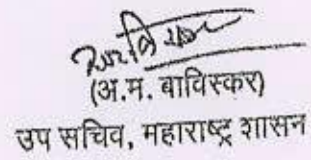 (अ.म. बाविस्कर)
उप सचिव, महाराष्ट्र शासन